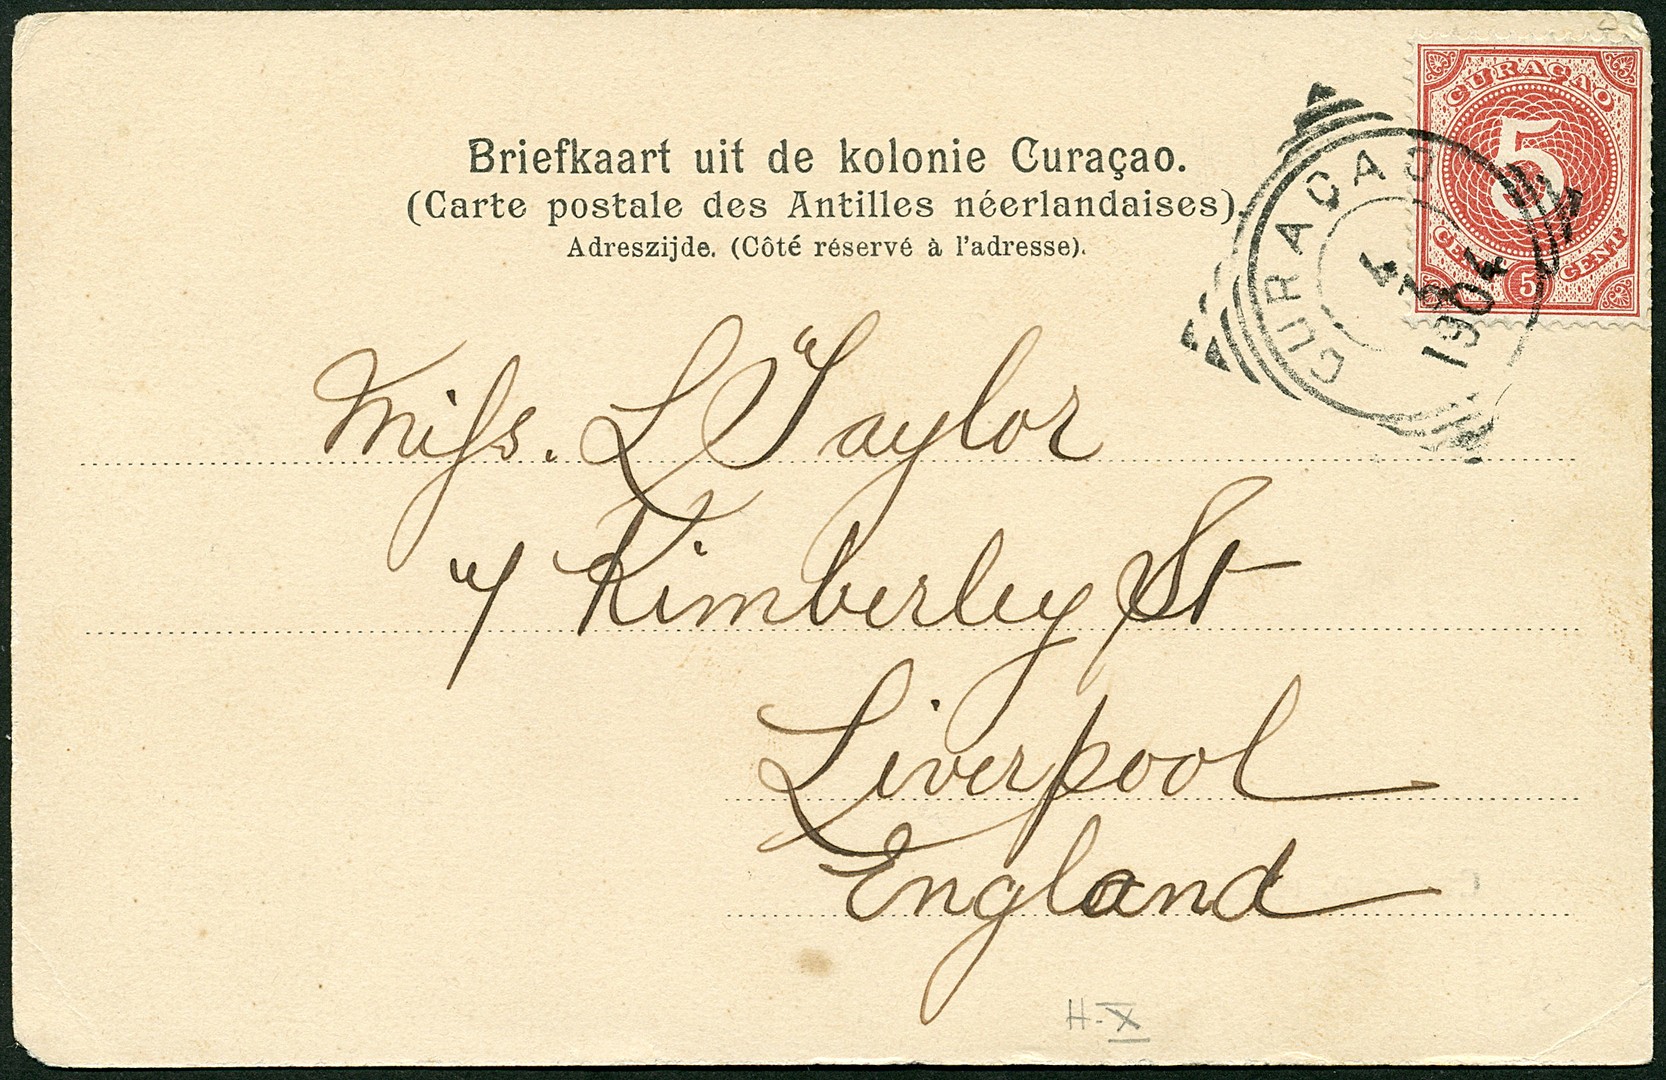 CURAÇAO
5
CENT 5 CENT
CURACAO
4
1904
Briefkaart uit de kolonie Curaçao.
(Carte postale des Antilles néerlandaises)
Adreszijde. (Côté réservé à l'adresse).
Miss. L Taylor
7 Kimberley St
Liverpool
England
H-X